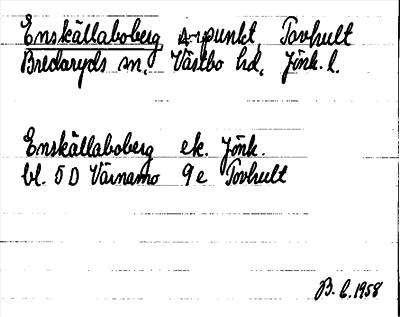 Enskällaboberg, ▵-punkt, Tovhult
Bredaryds sn, Västbo hd, Jönk. l.
Enskällaboberg ek. Jönk.
bl. 5D Värnamo 9e Tovhult
B. L. 1958